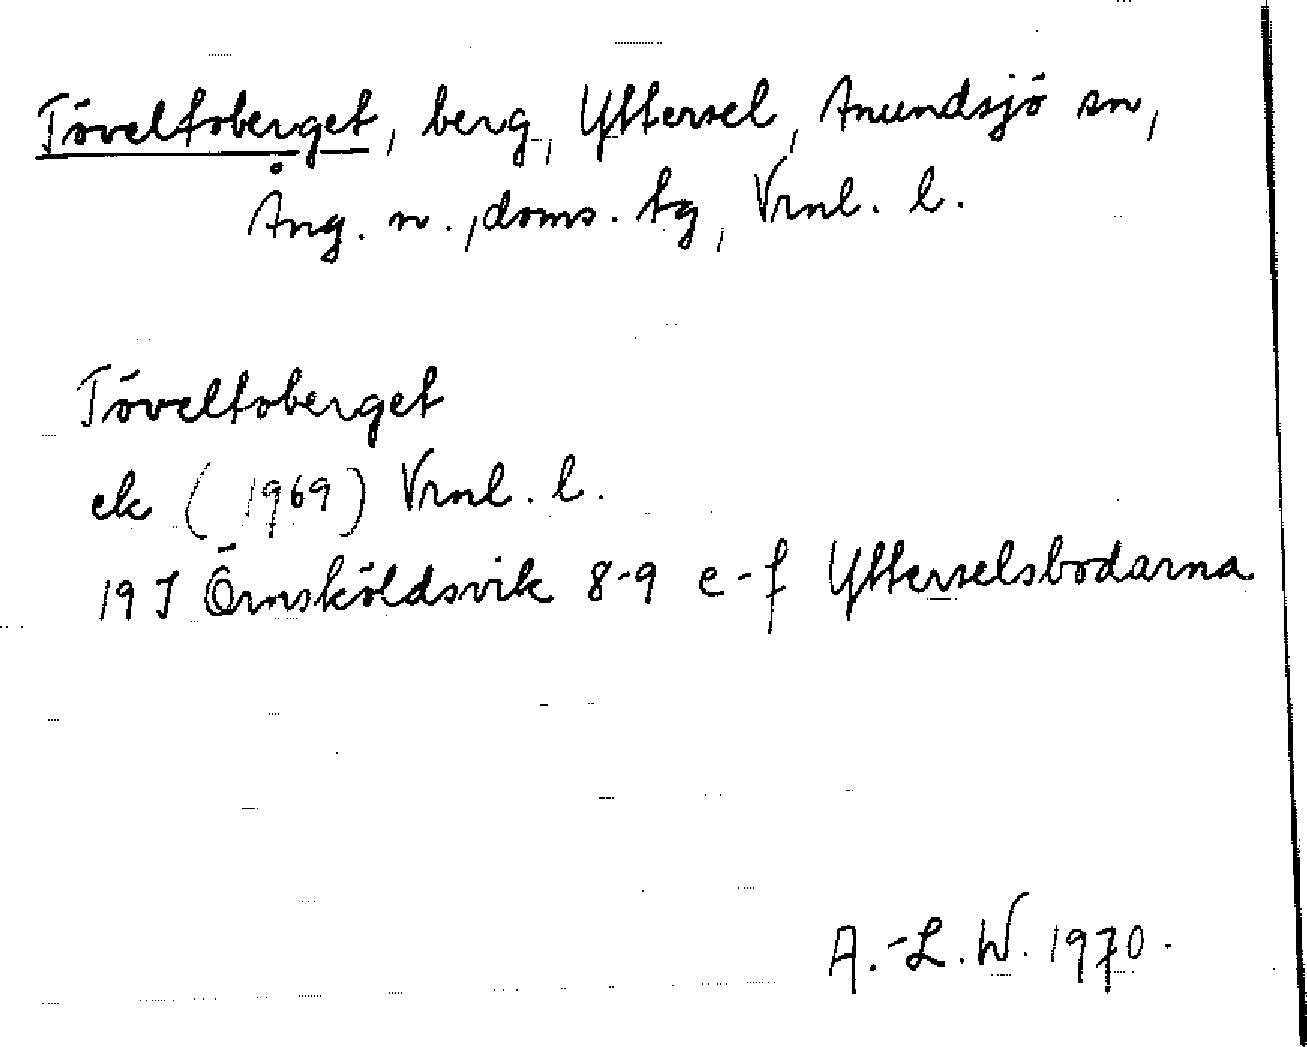 Töveltoberget, berg, Yttersel, Anundsjö sn,
Ång. n., doms. tg, Vrnl. l.
Töveltoberget
ek (1969) Vrnl. l.
19 J Örnsköldsvik 8-9 e-f Ytterselsbodarna
A.-L. W. 1970.